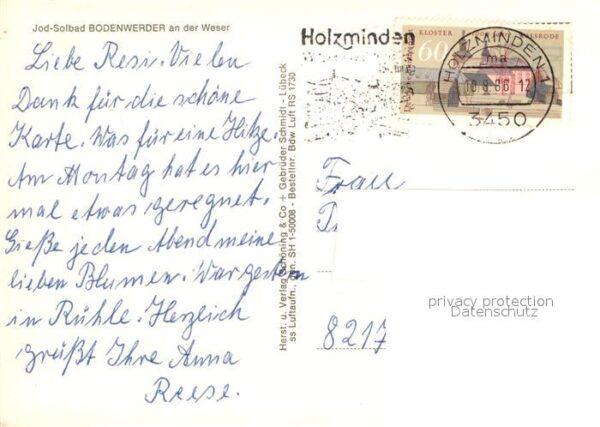 Jod-Solbad BODENWERDER an der Weser
Liebe Resi. Vielen
Dank für die schöne
Karte. Was für eine Hitze.
Am Montag hat es hier
mal etwas geregnet.
Gieße jeden Abend meine
lieben Blumen. War gestern
in Rühle. Herzlich
grüßt Ihre Anna
Reese.
Herst. u. Verlag Schöning & Co + Gebrüder Schmidt - Lübeck
ss Luftaufn., SH 1-50008 - Bestellnr. Bdw Luft RS 1730
Holzminden
KLOSTER
60
HOLZMINDEN 1
3450
Frau
8217
privacy protection
Datenschutz